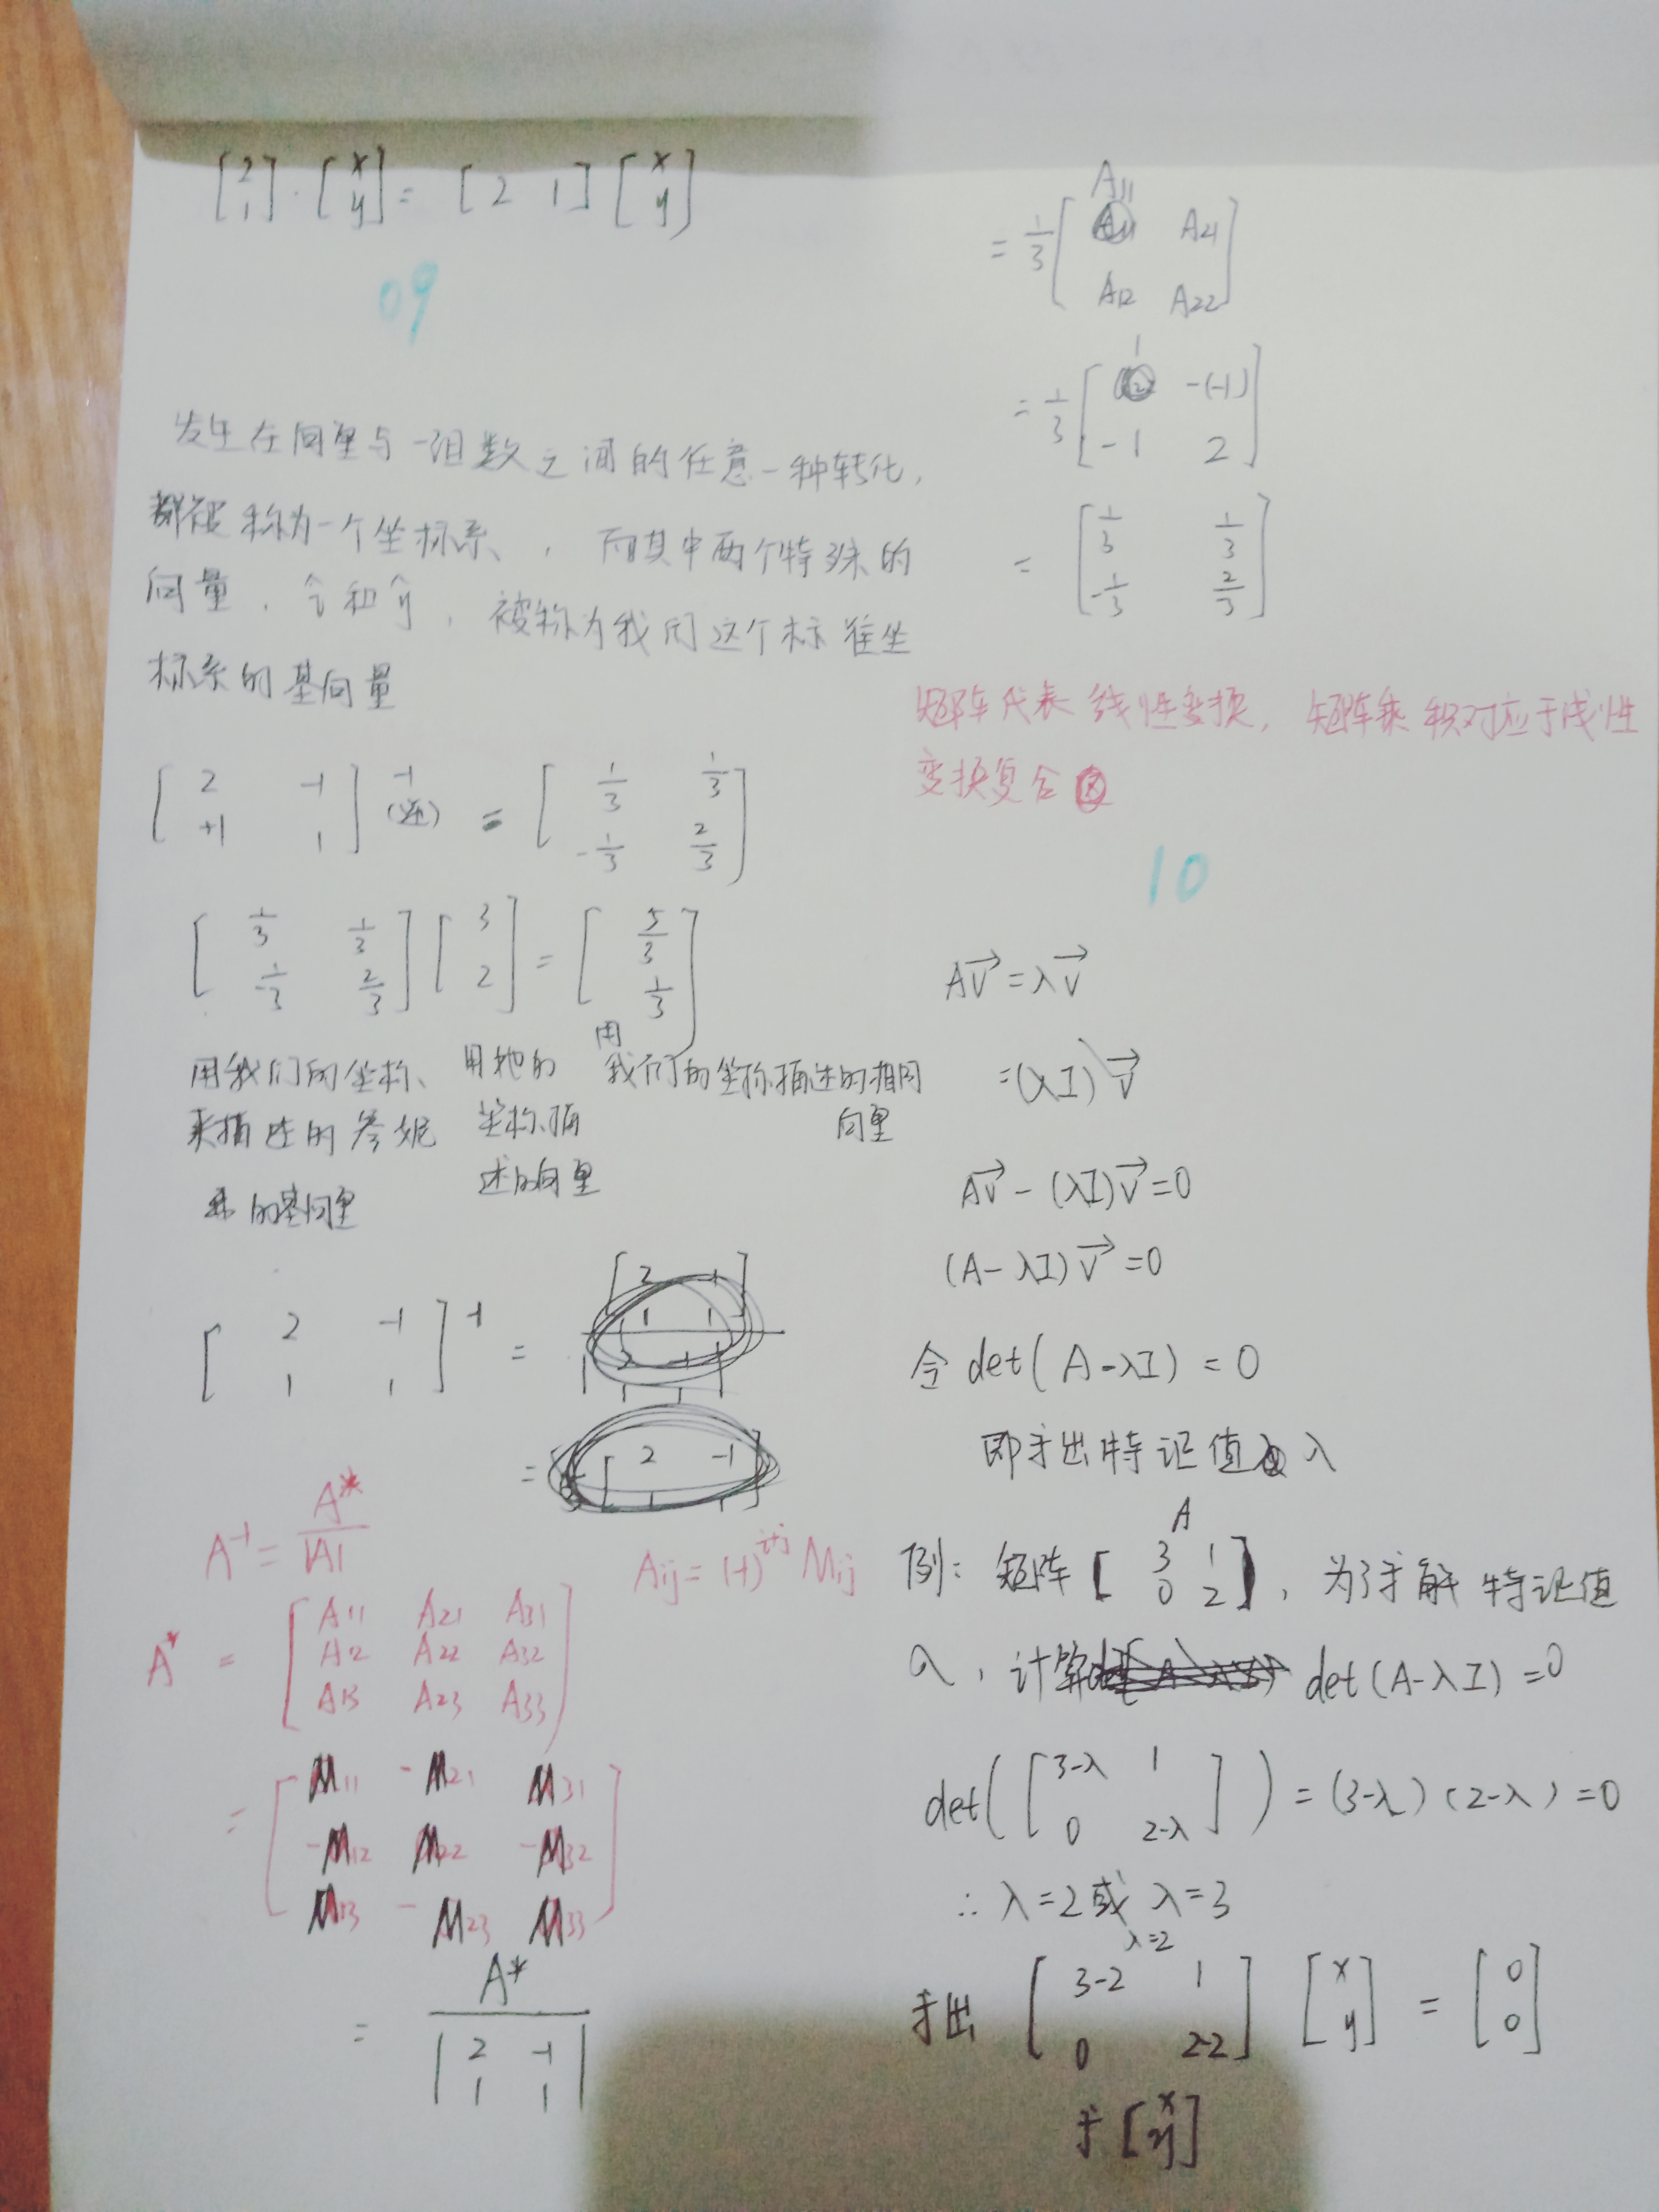 [2 1] · [x y] = [2 1] [x y]
09
发生在向量与一组数之间的任意一种转化,
都被称为一个坐标系, 而其中两个特殊的
向量, î和ĵ, 被称为我们这个标准坐
标系的基向量
[2 -1; +1 1]⁻¹(逆) = [1/3 1/3; -1/3 2/3]
[1/3 1/3; -1/3 2/3] [3; 2] = [5/3; 1/3]
用我们的坐标
来描述的詹妮
的基向量
用她的
坐标描
述的向量
用
我们的坐标描述的相同
向量
[2 -1; 1 1]⁻¹ =
=
A⁻¹ = A*/|A|
Aij = (-1)^(i+j) Mij
A* = [A11 A21 A31; A12 A22 A32; A13 A23 A33]
= [M11 -M21 M31; -M12 M22 -M32; M13 -M23 M33]
= A* / |2 -1; 1 1|
= 1/3 [A11 A21; A12 A22]
= 1/3 [1 -(-1); -1 2]
= [1/3 1/3; -1/3 2/3]
矩阵代表线性变换, 矩阵乘积对应于线性
变换复合
10
Av⃗ = λv⃗
= (λI)v⃗
Av⃗ - (λI)v⃗ = 0
(A - λI)v⃗ = 0
令 det(A - λI) = 0
即求出特证值 λ
A
例: 矩阵 [3 1; 0 2], 为了求解特证值
λ, 计算 det(A - λI) = 0
det([3-λ 1; 0 2-λ]) = (3-λ)(2-λ) = 0
∴ λ = 2 或 λ = 3
λ=2
求出 [3-2 1; 0 2-2] [x; y] = [0; 0]
求 [x; y]